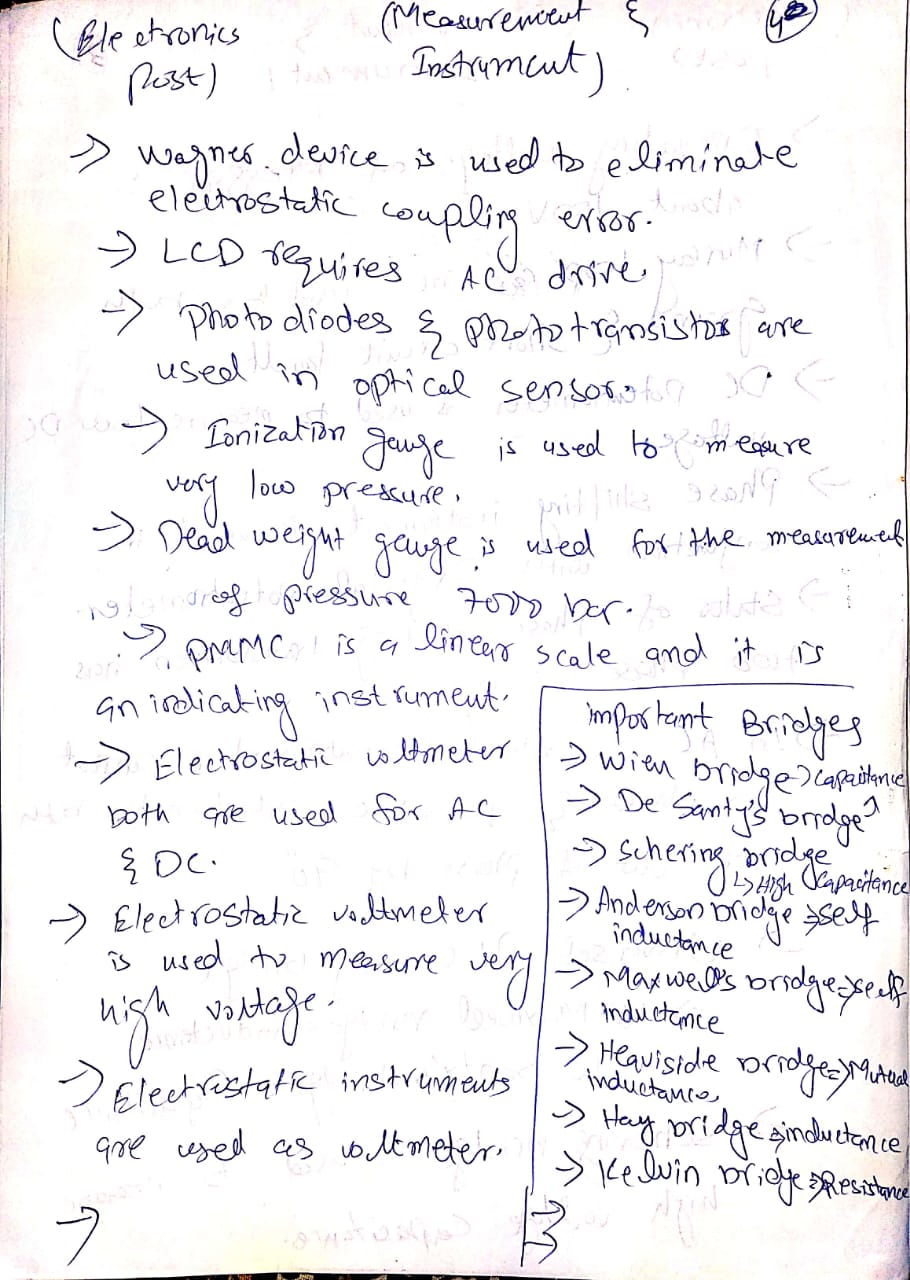 (Electronics
Post)
(Measurement &
Instrument)
→ Wagner device is used to eliminate
electrostatic coupling error.
→ LCD requires AC drive.
→ Photodiodes & phototransistor are
used in optical sensor.
→ Ionization gauge is used to measure
very low pressure.
→ Dead weight gauge is used for the measurement
of pressure 7000 bar.
→ PMMC is a linear scale and it is
an indicating instrument.
→ Electrostatic voltmeter
both are used for AC
& DC.
→ Electrostatic voltmeter
is used to measure very
high voltage.
→ Electrostatic instruments
are used as voltmeter.
→
important Bridges
→ Wien bridge → Capacitance
→ De Santy's bridge
→ Schering bridge
↳ High Capacitance
→ Anderson bridge ⇒ Self
inductance
→ Maxwell's bridge ⇒ Self
inductance
→ Heaviside bridge ⇒ Mutual
inductance
→ Hay bridge ⇒ inductance
→ Kelvin bridge ⇒ Resistance